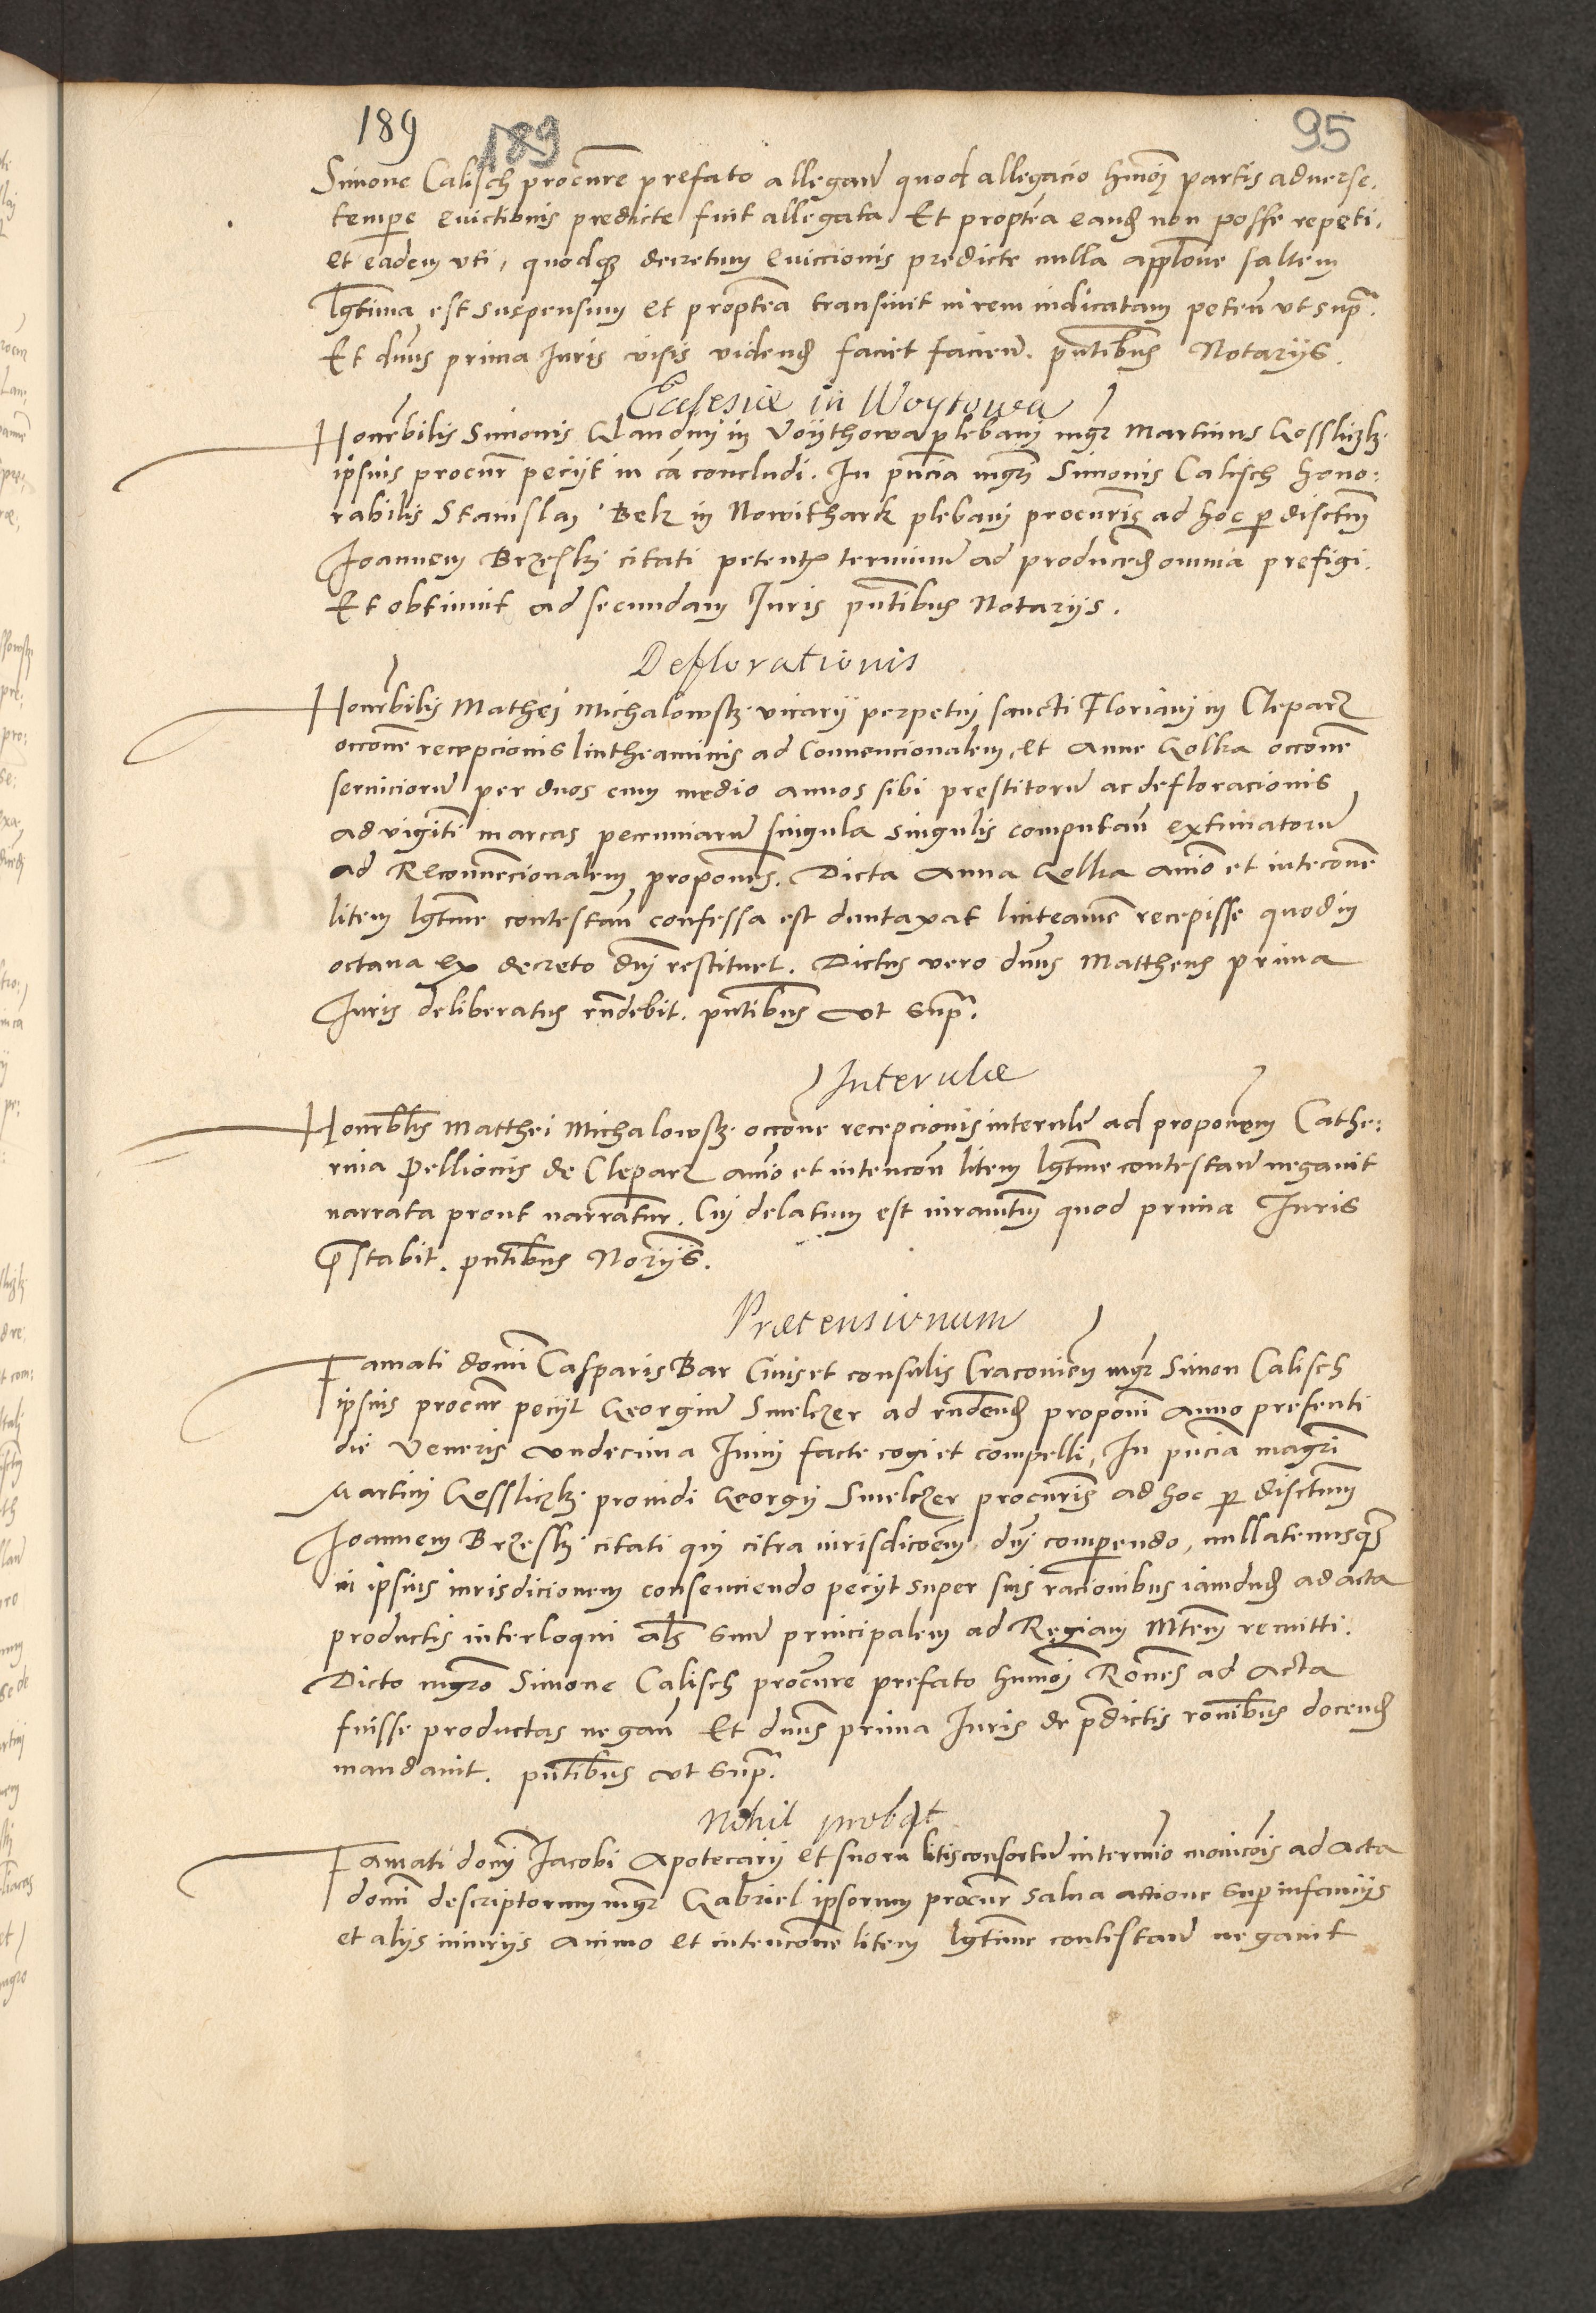 189 189 95
Simone Calisch procure prefato allegan quod allegacio hmoi partis aduerse.
tempore euictionis predicte fuit allegata. Et proptea eand non posse repeti.
et eadem vti, quodque decretum euiccionis predicte nulla applone saltem
lgtima est suspensum et proptea transiuit in rem iudicatam peten vt supra.
Et dnus prima Iuris visis vidend faciet facien. pntibus Notariis.
Ecclesiae in Woytowa
Honrbilis Simonis Glandini in Voythowa plebani mgr Martinus Gosslitzki
ipsius procur peciit in ca concludi. In pncia mgri Simonis Calisch hono:
rabilis Stanislai Belz in Nowithark plebani procuris ad hoc p disctum
Ioannem Brzeski citati petentis terminu ad producend omnia prefigi.
Et obtinuit ad secundam Iuris pntibus Notariis.
Deflorationis
Honrbilis Mathei Michalowski vicarii perpetui sancti Floriani in Cleparz
occone recepcionis lintheaminis ad Conuencionalem, et Anne Golka occone
seruicioru per duos cum medio annos sibi prestitoru ac defloracionis
ad viginti marcas pecuniaru singula singulis computan extimatoru
ad Reconuencionalem propones. Dicta Anna Golka aio et intecone
litem lgtime contestan confessa est duntaxat linteamen recepisse quod in
octaua ex decreto dni restituet. Dictus vero dnus Mattheus prima
Iuris deliberatus rndebit. pntibus vt supra.
Interulae
Honrbilis Matthei Michalowski occone recepcionis interule ad proponem Cathe:
rina Pellionis de Cleparz aio et intencon litem lgtime contestan negauit
narrata prout narrantur. Cui delatum est iuramtum quod prima Iuris
prestabit. pntibus Noriis.
Praetensionum
Famati domi Casparis Bar Ciuis et consulis Cracouien mgr Simon Calisch
ipsius procur peciit Georgiu Smelczer ad rndend proponi anno presenti
die Veneris vndecima Iunii facte cogi et compelli, In pncia magri
Martini Gosslitzki prouidi Georgii Smelczer procuris ad hoc p disctum
Ioannem Brzeski citati qui citra iurisdicoem dni comparendo, nullatenusque
in ipsius iurisdicionem consenciendo peciit super suis racionibus iamdud ad acta
productis interloqui als suu principalem ad Regiam Mtem remitti.
Dicto mgro Simone Calisch procure prefato humoi Rones ad Acta
fuisse productas negan Et dnus prima Iuris de predictis ronibus docend
mandauit. pntibus vt supra.
Nihil probat
Famati domi Iacobi Apotecarii et suoru litisconsortu in termio monicois ad acta
domi descriptorum mgr Gabriel ipsorum procur salua actione super infamiis
et aliis iniuriis animo et intencone litem lgtime contestan negauit